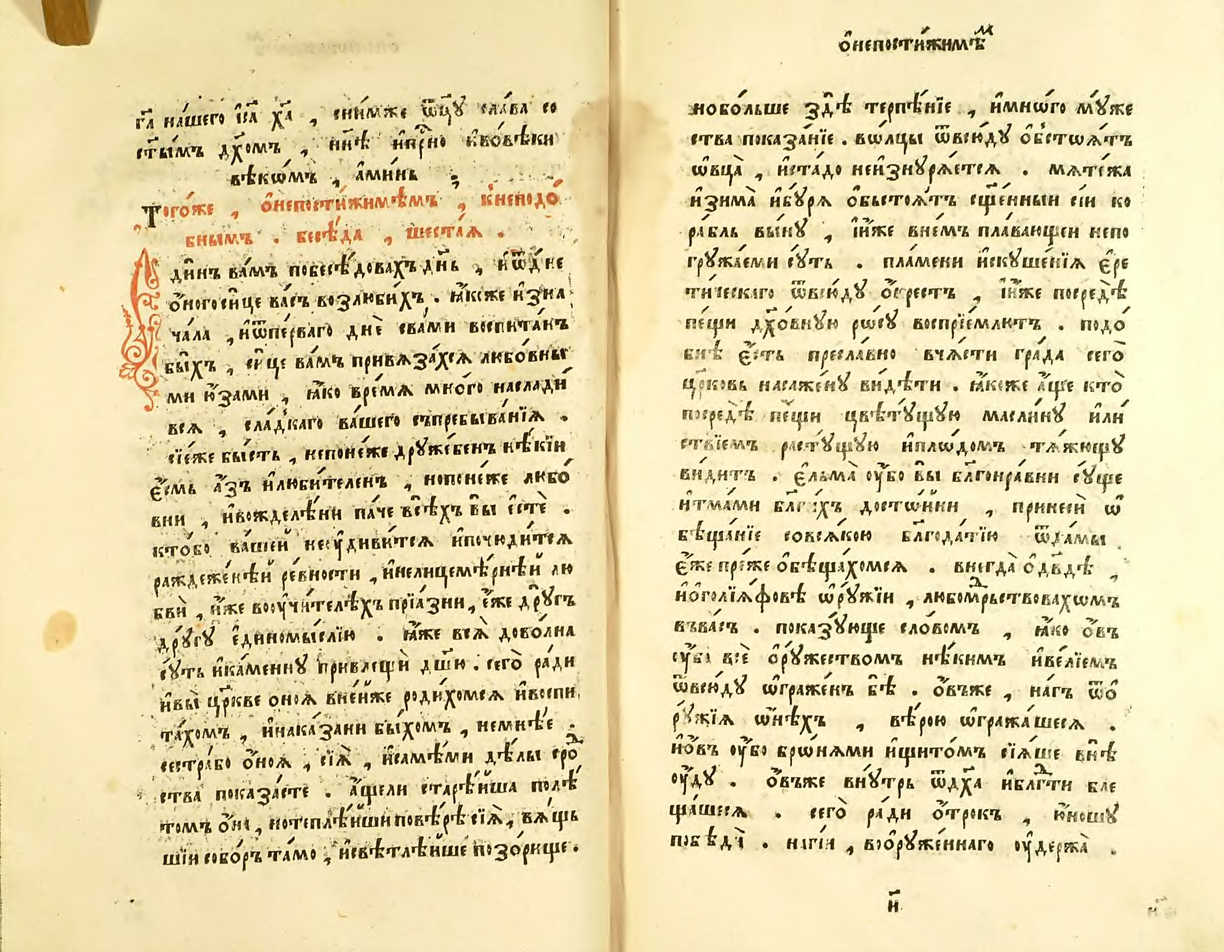 га҃ нашего іс҃а хс҃а , снимже ѿц҃у слава со
ст҃ымъ дх҃омъ , нн҃ѣ ипр҃но ивовѣки
вѣкѡмъ , аминь .
Тогоже , ѻнепостижимѣмъ , кнеподо́
бнымъ . бесѣда , шестаѧ .
Адинъ вамъ побесѣдовахъ дн҃ь , иѿдне
ѻногосице васъ возлюбихъ . ꙗкоже изна
чала , иѿперваго дне свами воспитанъ
быхъ , сице вамъ привѧзахсѧ любовны
ми юзами , ꙗко времѧ много наслади
всѧ , сладкаго вашего съпребыванїѧ .
сїеже бысть , непонеже друже́бенъ нѣкїи
єсмь азъ илюбителенъ , нопонеже любо
вни , ивожделѣни паче всѣхъ вы єсте .
ктобо вашей неꙋдивитсѧ ипочюдитсѧ
раждеженнѣй ревности , инелицемѣрнѣй лю
бви , иже воꙋчителѣхъ прїазни , єже другъ
другу єдиномыслїю . ꙗже всѧ доволна
суть икаменну привлещи дш҃ю . сего ради
ивы цр҃кве ѻноѧ внейже родихомсѧ ивоспи
тахомъ , инаказани быхомъ , немнѣе .
сестрабо ѻноѧ , сїѧ , исамѣми дѣлы сро
ства показасте . ащели старѣйша полѣ
томъ ѻна , нотеплѣйши повѣрѣ сїѧ , вѧщь
шїи соборъ тамо , исвѣтлѣйше позорище .
ѻнепостижимѣм
нобольше здѣ терпѣнїе , имнѡго муже
ства показанїе . вѡлцы ѿвсюду ѡбстоѧтъ
ѡвца , истадо неизнурѧетсѧ . мѧтежа
изима ибурѧ ѻбыстоѧтъ сщ҃енныи сїи ко
рабль выну , їиже внемъ плавающеи непо
гружаеми суть . пламени искушенїѧ єре
тическаго ѿвсюду ѻкрестъ , їиже посредѣ
пещи дх҃овную росу воспрїемлютъ . подо
бнѣ єсть преславно вчѧсти града сего
цр҃ковь насажену видѣти . ꙗкоже аще кто
посредѣ пещи цвѣтущую маслину или
ствїемъ растущую иплѡдомъ тѧжющу
видитъ . єльма ѹбо вы бл҃гонравни суще
итмами бл҃гихъ достѡйни , принеси ѡ
бѣщанїе совсѧкою бл҃годатїю ѿдамы
єже преже ѻбѣщахомсѧ . внегда ѻдв҃дѣ ,
иѻголїѧфовѣ ѡружїи , любомдрьствовахѡмъ
въвасъ . показующе словомъ , ꙗко ѻвъ
ѹбо все ѻружествомъ нѣкимъ ивелїемъ
ѿвсюду ѡгражен бѣ . ѻвъже , нагъ ѿѻ
ружїѧ ѡнѣхъ , вѣрою ѡгражашесѧ .
иѻвъ ѹбо бронѧми ищитомъ сїѧше внѣ
ѹду . ѻвъже внутрь ѿдх҃а ибл҃гти бле
щашесѧ . сего ради ѻтрокъ , юношу
побѣди . нагїи , воѻруженнаго ѹдержа .
и҃